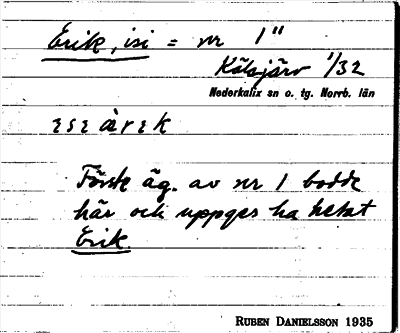 Erik, isi = nr 1"
Kälsjärv 1/32
Nederkalix sn o. tg. Norrb. län
Förste äg. av nr 1 bodde
här och uppges ha hetat
Erik.
RUBEN DANIELSSON 1935